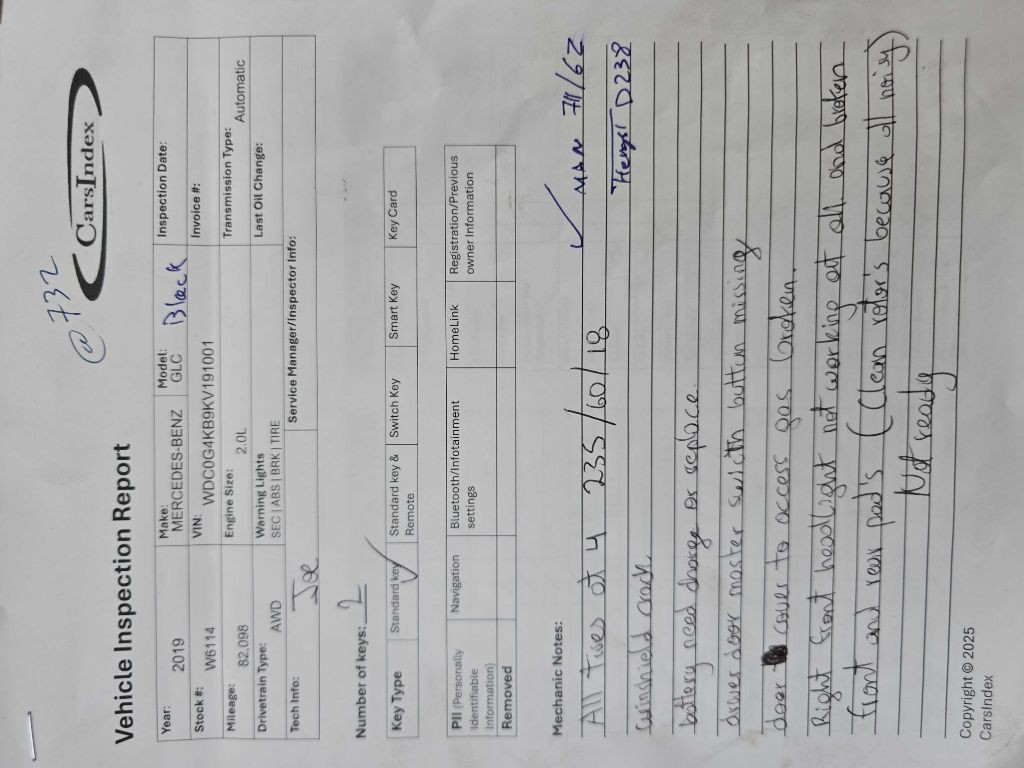 @ 732
CarsIndex
Vehicle Inspection Report
Year: 2019 Make: MERCEDES-BENZ Model: GLC Black Inspection Date:
Stock #: W6114 VIN: WDC0G4KB9KV191001 Invoice #:
Mileage: 82,098 Engine Size: 2.0L Transmission Type: Automatic
Drivetrain Type: AWD Warning Lights SEC | ABS | BRK | TIRE Last Oil Change:
Tech Info: Joe Service Manager/Inspector Info:
Number of keys: 2
Key Type Standard key ✓ Standard key & Remote Switch Key Smart Key Key Card
PII (Personally Identifiable Information) Navigation Bluetooth/Infotainment settings HomeLink Registration/Previous owner Information
Removed
Mechanic Notes:
All Tires at 4 235/60/18 ✓ MAN 711/62
windshield crack. D238
battery need charge or replace.
driver door master switch button missing
door cover to access gas broken.
Right front headlight not working at all and broken
front and rear pad's (Clean rotor's because all noisy)
Not ready
Copyright © 2025
CarsIndex